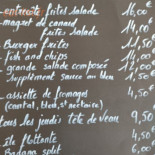 - entrecôte frites salade 16,00€
- magret de canard
frites salade 14,00
- Burger frites 11,50
- fish and chips 14,00
- grande salade composée
supplément sauce au bleu 1,50
- assiette de fromages 4,50
(cantal, bleu, st nectaire)
tous les jeudis tête de veau 9,50
- île flottante 4,50
- Banana split 6,00